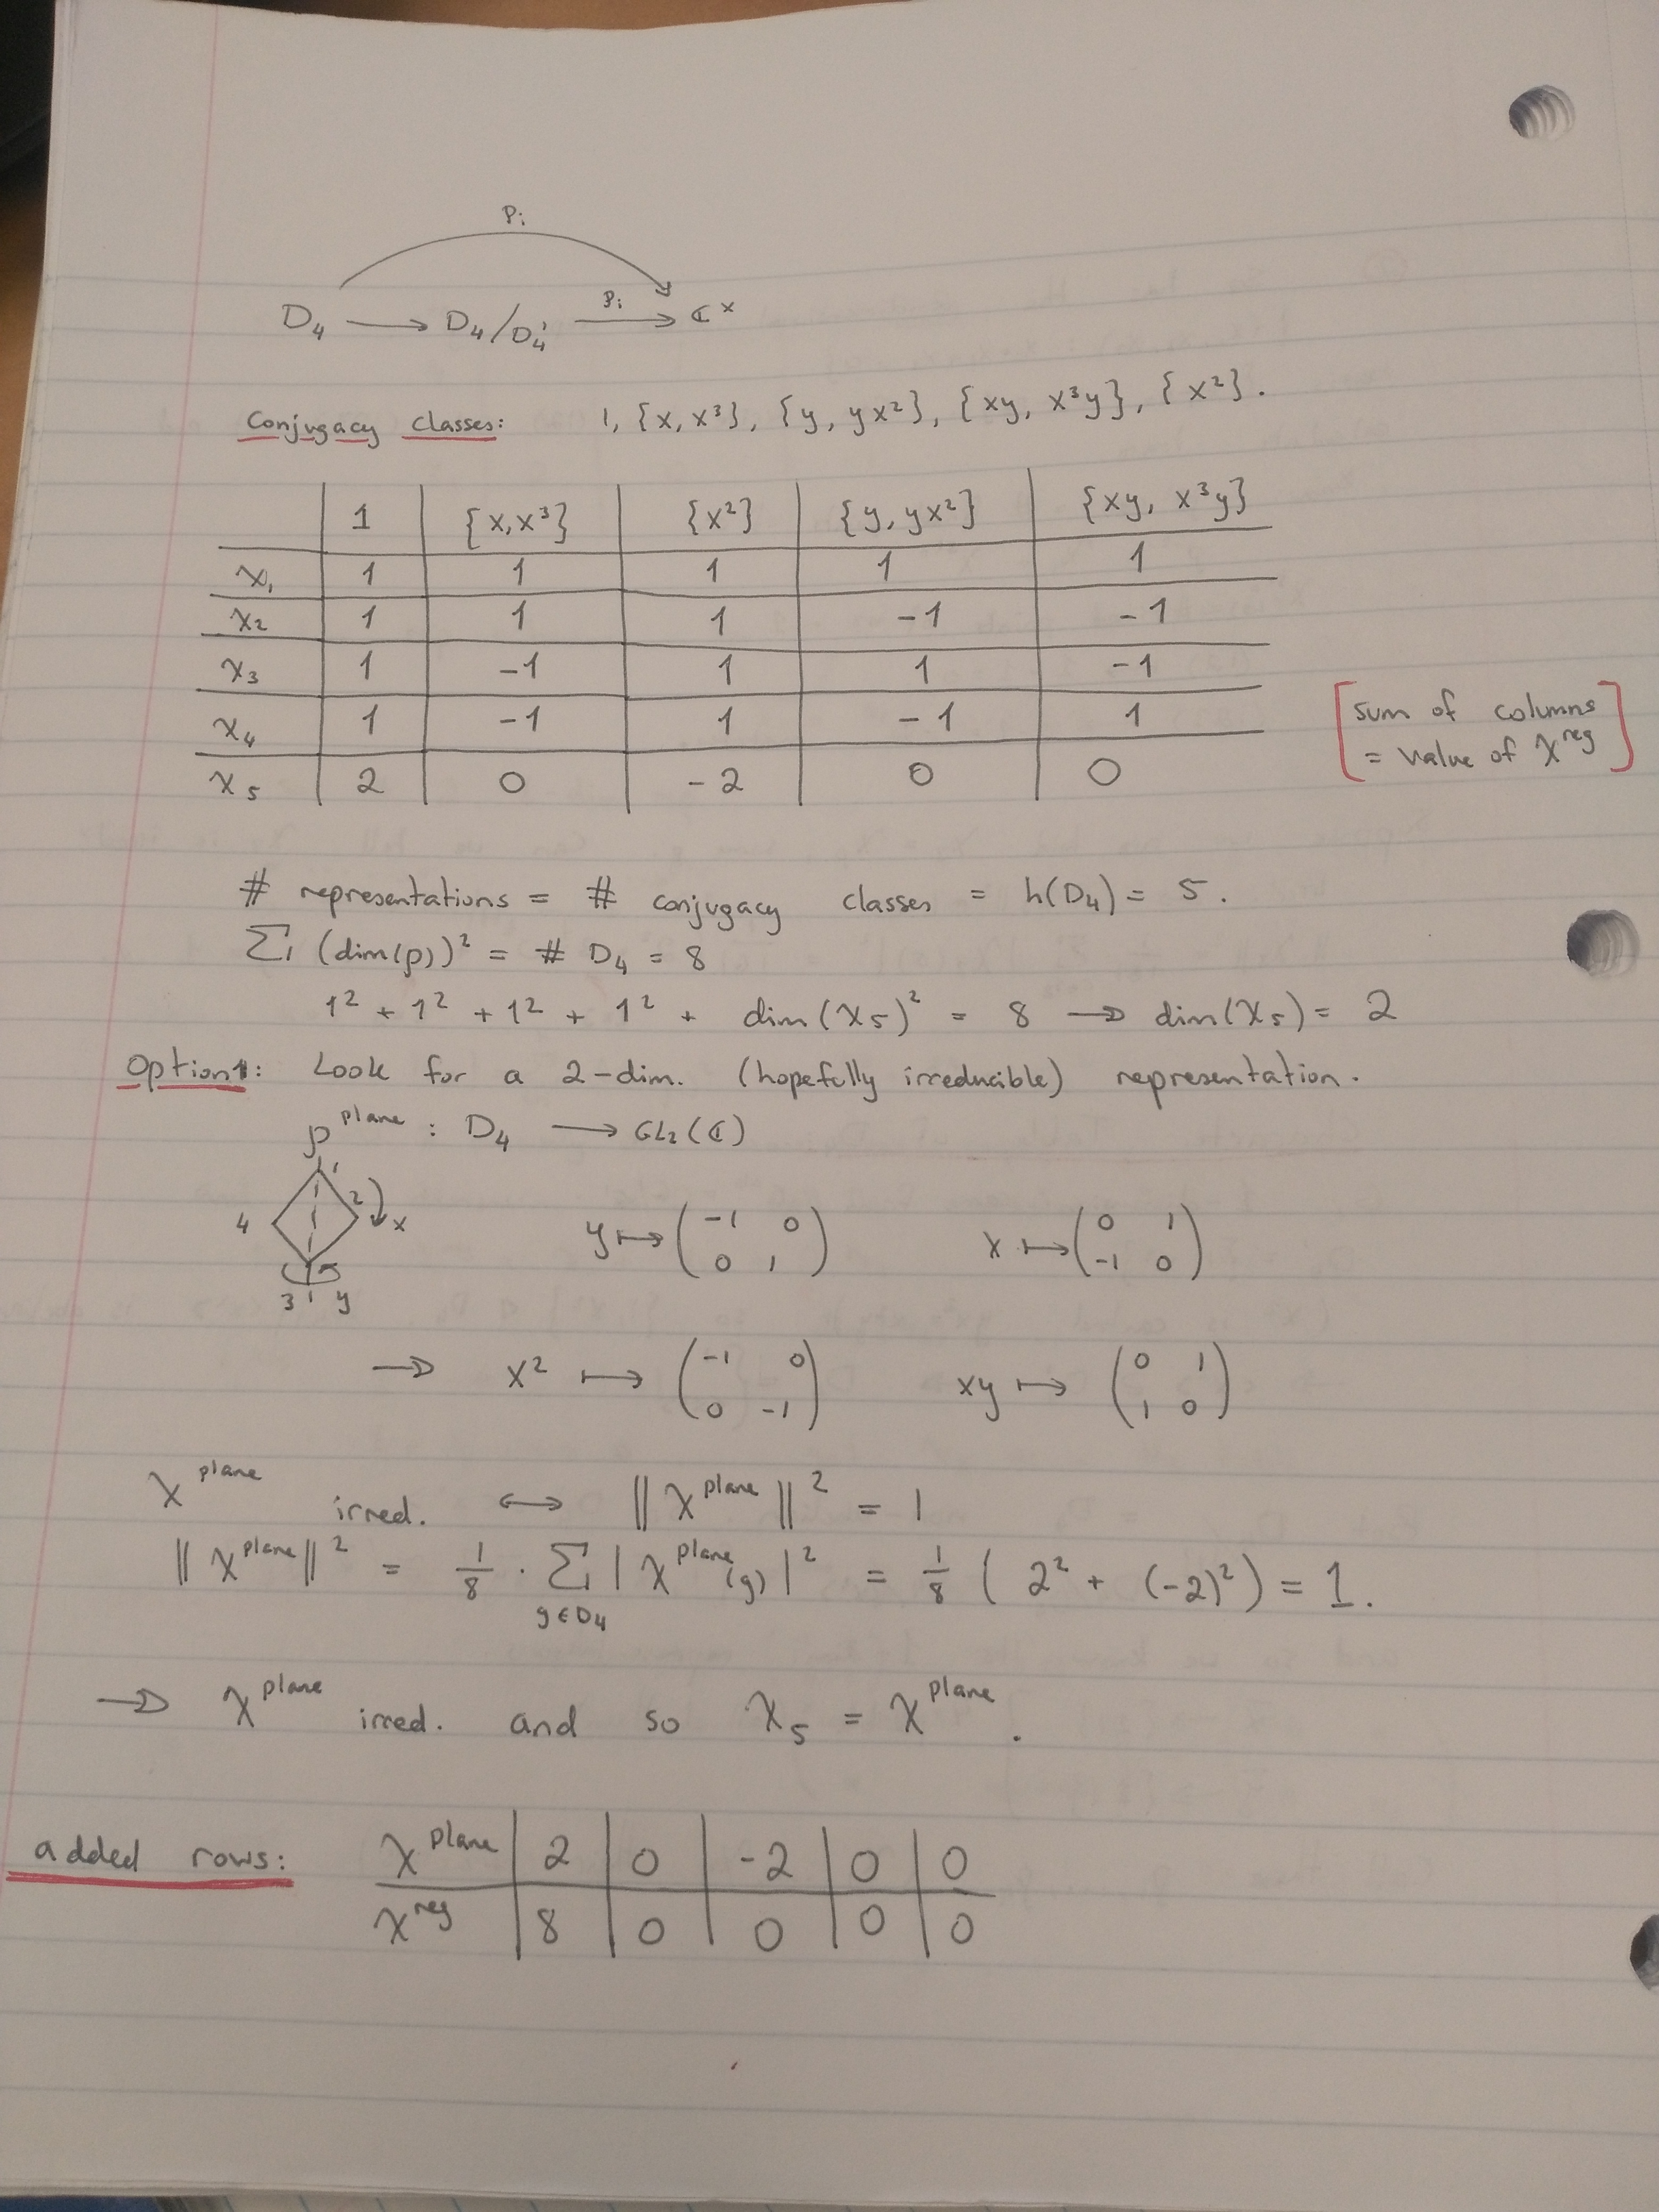 ρᵢ
D₄ ⟶ D₄/D₄' ⟶ ℂ^×
ρ̃ᵢ
Conjugacy classes: 1, {x, x³}, {y, yx²}, {xy, x³y}, {x²}.
1 {x, x³} {x²} {y, yx²} {xy, x³y}
χ₁ 1 1 1 1 1
χ₂ 1 1 1 -1 -1
χ₃ 1 -1 1 1 -1
χ₄ 1 -1 1 -1 1
χ₅ 2 0 -2 0 0
[sum of columns
= value of χ^reg]
# representations = # conjugacy classes = h(D₄) = 5.
Σ (dim(ρ))² = # D₄ = 8
1² + 1² + 1² + 1² + dim(χ₅)² = 8 → dim(χ₅) = 2
Option 1: Look for a 2-dim. (hopefully irreducible) representation.
ρ^plane : D₄ ⟶ GL₂(ℂ)
1 2 x 4 3 y
y ↦ (-1 0; 0 1) x ↦ (0 1; -1 0)
→ x² ↦ (-1 0; 0 -1) xy ↦ (0 1; 1 0)
χ^plane irred. ↔ ‖χ^plane‖² = 1
‖χ^plane‖² = 1/8 · Σ_{g∈D₄} |χ^plane(g)|² = 1/8 (2² + (-2)²) = 1.
→ χ^plane irred. and so χ₅ = χ^plane.
added rows: χ^plane 2 0 -2 0 0
χ^reg 8 0 0 0 0